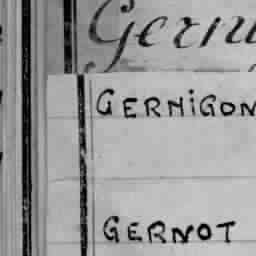 Gerni
GERNIGON
GERNOT